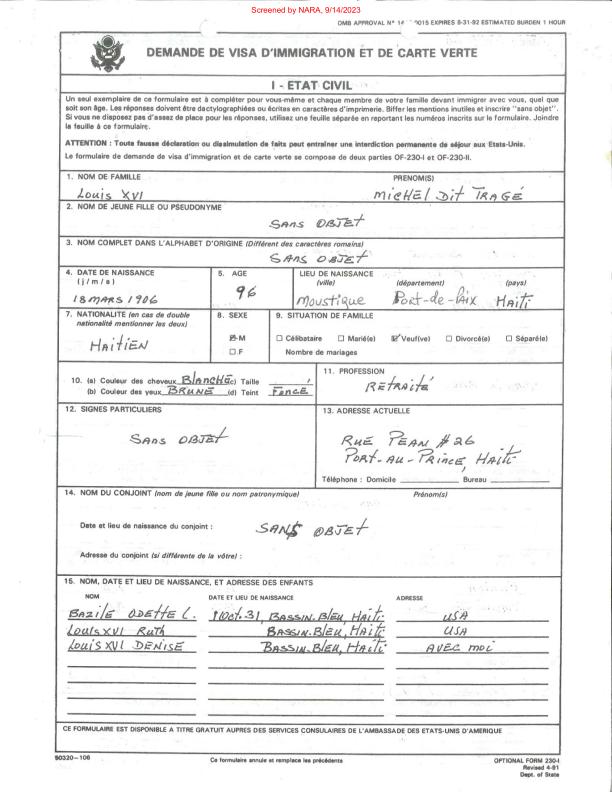 Screened by NARA, 9/14/2023
OMB APPROVAL N° 14 0015 EXPIRES 8-31-92 ESTIMATED BURDEN 1 HOUR
DEMANDE DE VISA D'IMMIGRATION ET DE CARTE VERTE
I - ETAT CIVIL
Un seul exemplaire de ce formulaire est à compléter pour vous-même et chaque membre de votre famille devant immigrer avec vous, quel que
soit son âge. Les réponses doivent être dactylographiées ou écrites en caractères d'imprimerie. Biffer les mentions inutiles et inscrire "sans objet".
Si vous ne disposez pas d'assez de place pour les réponses, utilisez une feuille séparée en reportant les numéros inscrits sur le formulaire. Joindre
la feuille à ce formulaire.
ATTENTION : Toute fausse déclaration ou dissimulation de faits peut entraîner une interdiction permanente de séjour aux Etats-Unis.
Le formulaire de demande de visa d'immigration et de carte verte se compose de deux parties OF-230-I et OF-230-II.
1. NOM DE FAMILLE PRENOM(S)
Louis XVI MICHEL Dit TRAGÉ
2. NOM DE JEUNE FILLE OU PSEUDONYME
SANS OBJET
3. NOM COMPLET DANS L'ALPHABET D'ORIGINE (Différent des caractères romains)
SANS OBJET
4. DATE DE NAISSANCE 5. AGE LIEU DE NAISSANCE
(j / m / a) (ville) (département) (pays)
18 MARS 1906 96 MOUSTIQUE PORT-de-PAIX HAITI
7. NATIONALITÉ (en cas de double 8. SEXE 9. SITUATION DE FAMILLE
nationalité mentionner les deux)
HAITIEN M Célibataire Marié(e) Veuf(ve) Divorcé(e) Séparé(e)
F Nombre de mariages
10. (a) Couleur des cheveux BLANCHE c) Taille 11. PROFESSION
(b) Couleur des yeux BRUNE (d) Teint FONCE RETRAITÉ
12. SIGNES PARTICULIERS 13. ADRESSE ACTUELLE
SANS OBJET RUE PEAN # 26
PORT-AU-PRINCE, HAITI
Téléphone : Domicile Bureau
14. NOM DU CONJOINT (nom de jeune fille ou nom patronymique) Prénom(s)
Date et lieu de naissance du conjoint : SANS OBJET
Adresse du conjoint (si différente de la vôtre) :
15. NOM, DATE ET LIEU DE NAISSANCE, ET ADRESSE DES ENFANTS
NOM DATE ET LIEU DE NAISSANCE ADRESSE
BAZILE ODETTE L. 1 Oct. 31, BASSIN-BLEU, HAITI USA
LOUIS XVI RUTH BASSIN-BLEU, HAITI USA
LOUIS XVI DENISE BASSIN-BLEU, HAITI AVEC MOI
CE FORMULAIRE EST DISPONIBLE A TITRE GRATUIT AUPRES DES SERVICES CONSULAIRES DE L'AMBASSADE DES ETATS-UNIS D'AMERIQUE
50320-106 Ce formulaire annule et remplace les précédents OPTIONAL FORM 230-I
Revised 4-91
Dept. of State